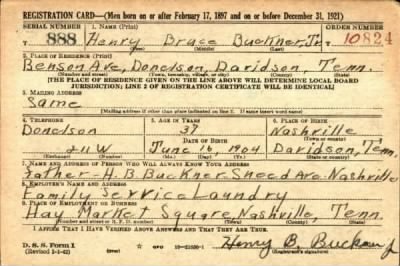 REGISTRATION CARD—(Men born on or after February 17, 1897 and on or before December 31, 1921)
SERIAL NUMBER 1. NAME (Print) ORDER NUMBER
888 Henry Bruce Buckner, Jr. 10824
2. PLACE OF RESIDENCE (Print)
Benson Ave, Donelson, Davidson, Tenn.
(Number and street) (Town, township, village, or city) (County) (State)
[THE PLACE OF RESIDENCE GIVEN ON THE LINE ABOVE WILL DETERMINE LOCAL BOARD
JURISDICTION; LINE 2 OF REGISTRATION CERTIFICATE WILL BE IDENTICAL]
3. MAILING ADDRESS
Same
[Mailing address if other than place indicated on line 2. If same insert word same]
4. TELEPHONE 5. AGE IN YEARS 6. PLACE OF BIRTH
Donelson 37 Nashville
DATE OF BIRTH (Town or county)
211W June 16 1904 Davidson, Tenn.
(Exchange) (Number) (Mo.) (Day) (Yr.) (State or country)
7. NAME AND ADDRESS OF PERSON WHO WILL ALWAYS KNOW YOUR ADDRESS
Father - H. B. Buckner - Sneed Ave. Nashville
8. EMPLOYER'S NAME AND ADDRESS
Family Service Laundry
9. PLACE OF EMPLOYMENT OR BUSINESS
Hay Market Square, Nashville, Tenn.
(Number and street or R. F. D. number) (Town) (County) (State)
I AFFIRM THAT I HAVE VERIFIED ABOVE ANSWERS AND THAT THEY ARE TRUE.
D. S. S. Form 1
(Revised 1-2-42) (over) Henry B. Buckner Jr